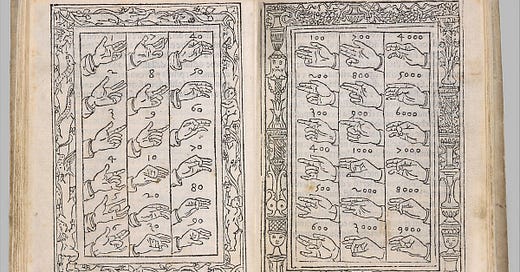 40
2 8 50
3 9
4 10 70
20 80
100 700 4000
200 800 5000
300 900 6000
400 1000 7000
500 2000 8000
600 3000 9000